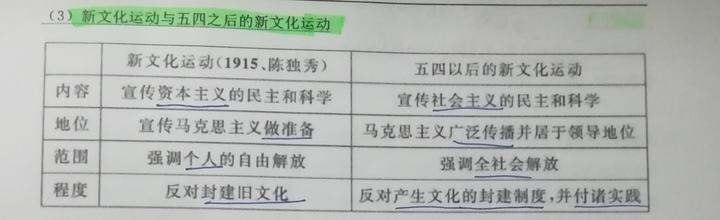 (3) 新文化运动与五四之后的新文化运动
新文化运动(1915、陈独秀) 五四以后的新文化运动
内容 宣传资本主义的民主和科学 宣传社会主义的民主和科学
地位 宣传马克思主义做准备 马克思主义广泛传播并居于领导地位
范围 强调个人的自由解放 强调全社会解放
程度 反对封建旧文化 反对产生文化的封建制度,并付诸实践